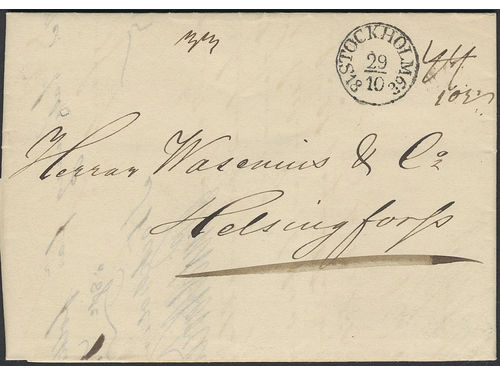 STOCKHOLM
29
10
1839
Herrar Wasenius & Co
Helsingfors